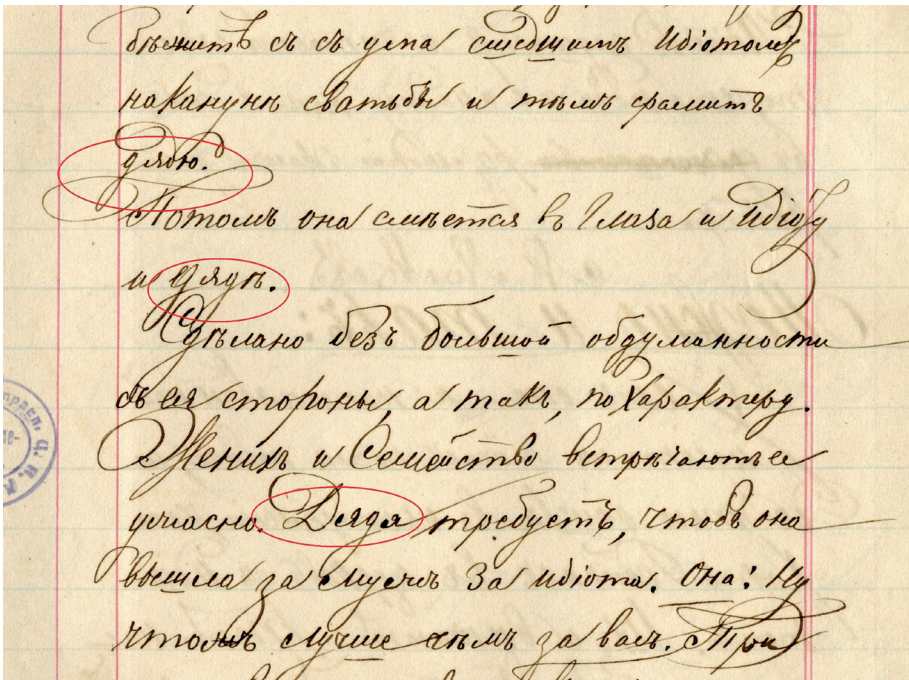 бѣжитъ съ съ ума сшедшимъ Идіотомъ
наканунѣ сватьбы и тѣмъ срамитъ
дядю.
Потомъ она смѣется въ Глаза и Идіоту
и дядѣ.
Сдѣлано безъ большой обдуманности
съ ея стороны, а такъ, по Характеру.
Женихъ и Семейство встрѣчаютъ ее
ужасно. Дядя требуетъ, чтобъ она
вышла за мужъ За идіота. Она: Ну
чтожъ лучше чѣмъ за васъ. При